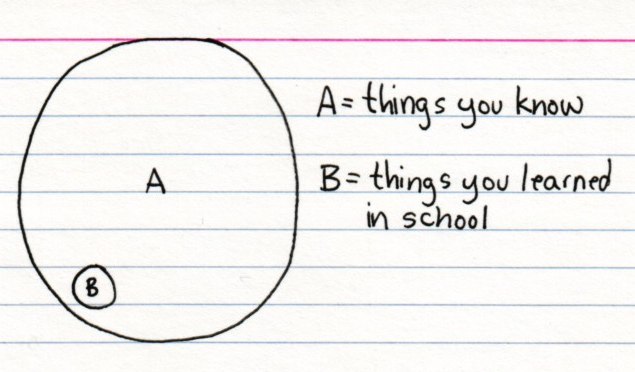 A
B
A= things you know
B= things you learned
in school